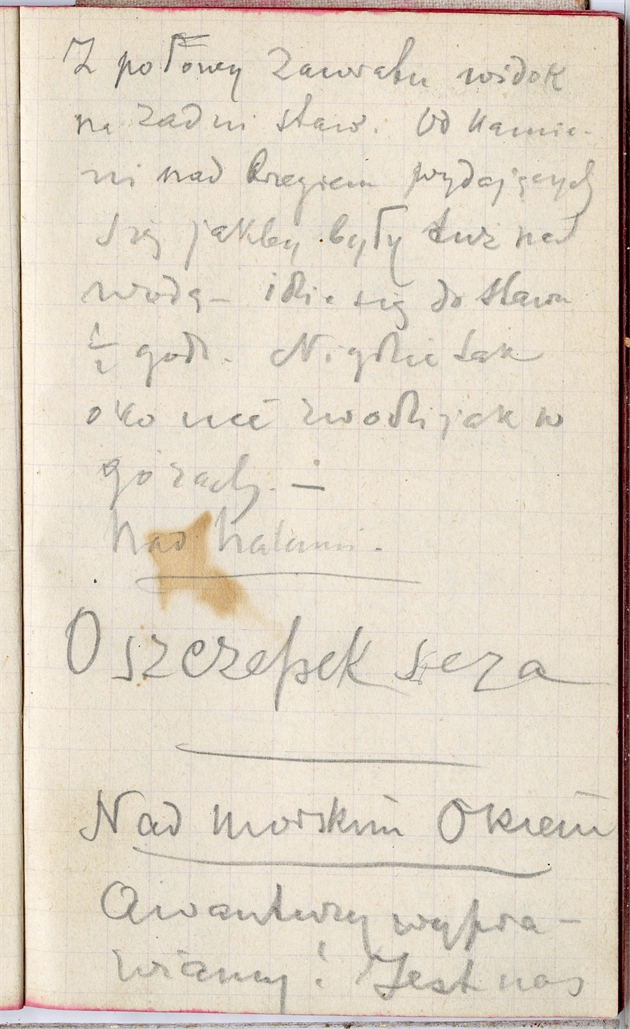 Z połowy Zawratu widok
na zadni staw. Od kamie-
ni nad brzegiem wydających
się jakby były tuż nad
wodą – idzie się do stawu
1/2 godz. Nigdzie tak
oko nie zwodzi jak w
górach. –
Nad halami.
Oszczepek sera
Nad morskim Okiem
Awantury wypra-
wiamy! Jest nas